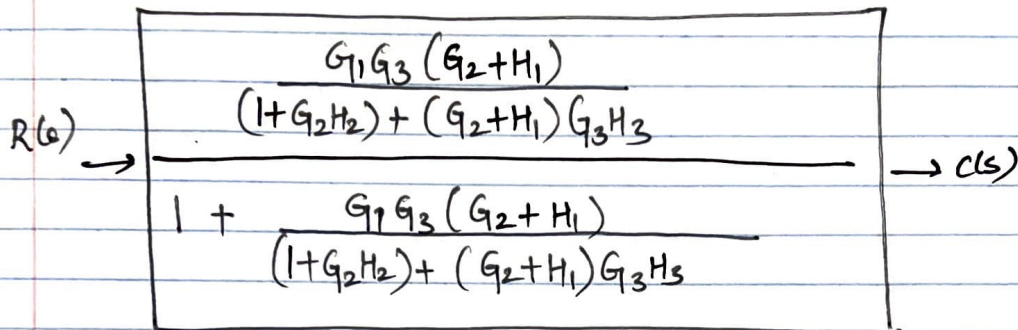 G₁G₃(G₂+H₁)
(1+G₂H₂)+(G₂+H₁)G₃H₃
R(s) → → C(s)
1 + G₁G₃(G₂+H₁)
(1+G₂H₂)+(G₂+H₁)G₃H₃